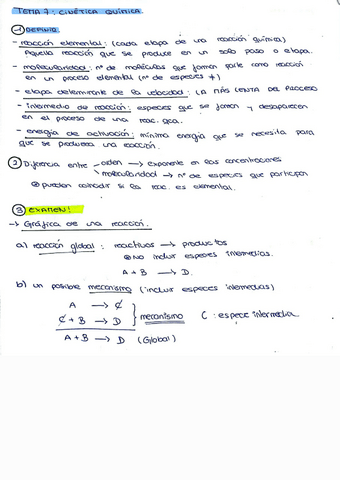 TEMA 7: CINÉTICA QUÍMICA.
① DEFINIR
- reacción elemental: (cada etapa de una reacción química)
Aquella reacción que se produce en un solo paso o etapa.
- molecularidad: nº de moléculas que forman parte como reacción
en un proceso elemental (nº de especies +)
- etapa determinante de la velocidad: LA MÁS LENTA DEL PROCESO
- Intermedio de reacción: especies que se forman y desaparecen
en el proceso de una reac. qca.
- energía de activación: mínima energía que se necesita para
que se produzca una reacción.
② Diferencia entre orden → exponente en las concentraciones
molecularidad → nº de especies que participan
⊗ pueden coincidir si la reac. es elemental.
③ EXAMEN!
→ Gráfica de una reacción.
a) reacción global: reactivos → productos
⊗ No incluir especies intermedias.
A + B → D.
b) un posible mecanismo (incluir especies intermedias)
A → C
C + B → D } mecanismo C: especie intermedia
A + B → D (Global)